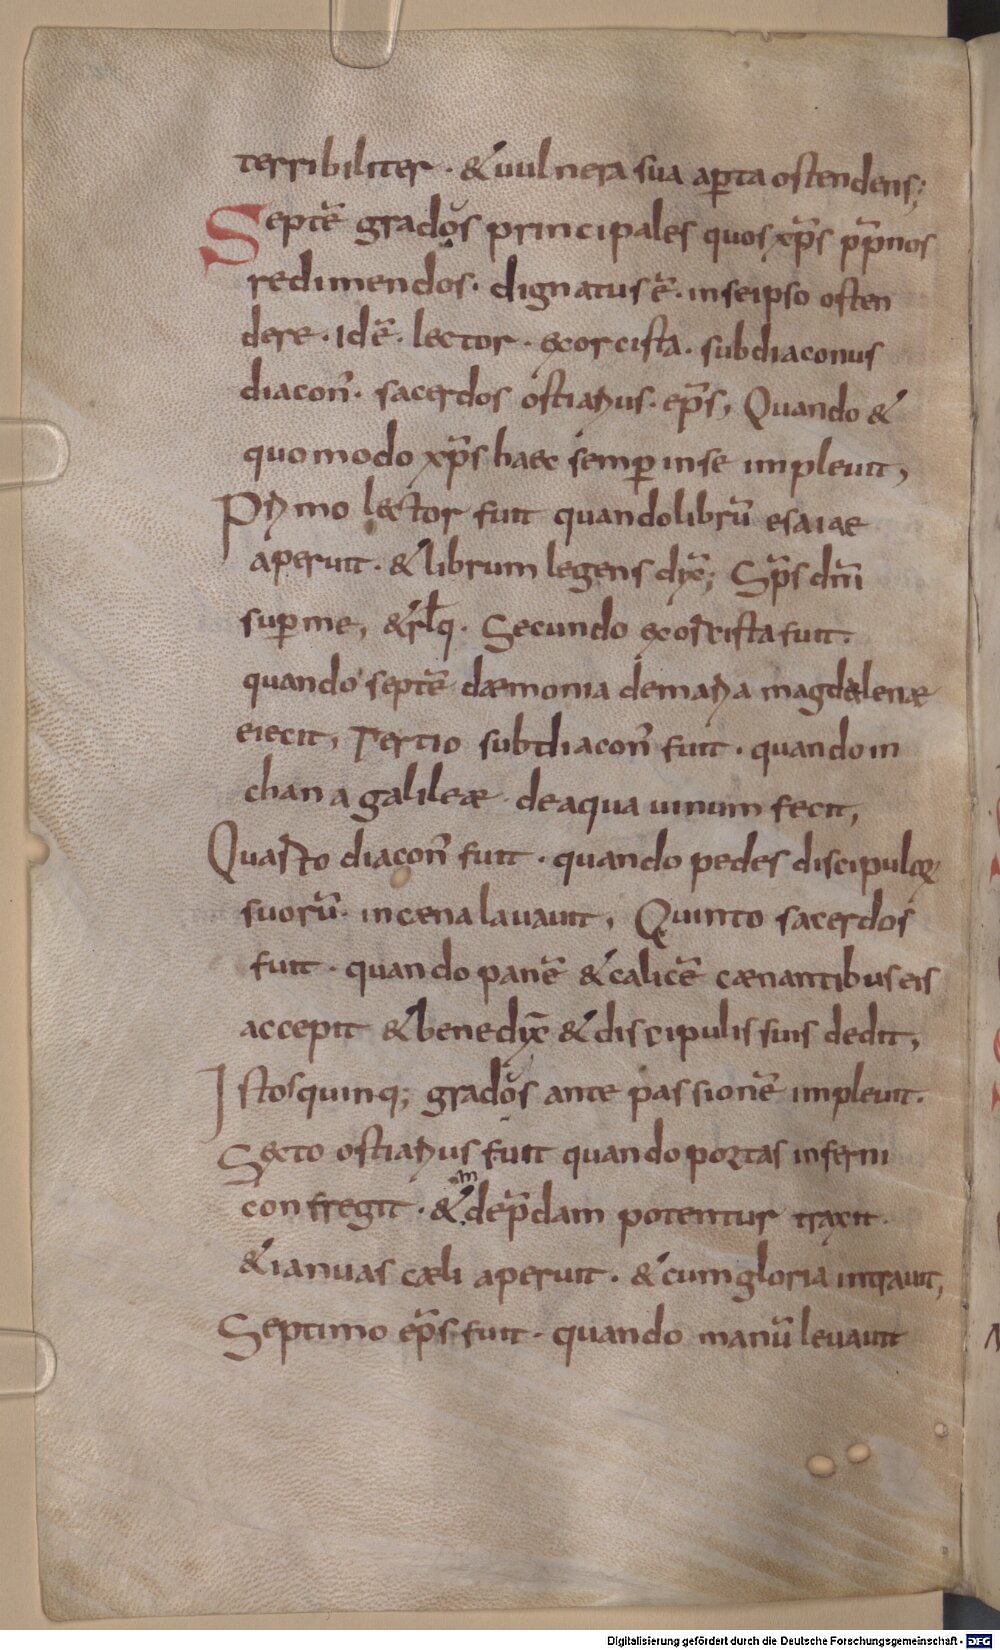 terribiliter · & uulnera sua ap̄ta ostendens;
Septē gradọus principales quos xp̄s pp̄nos
redimendos · dignatus ē · inseipso osten
dere · Idē · lector · excorcista · subdiaconus
diacoñ · sacerdos ostiarius · ep̄s, Quando &
quomodo xp̄s haec semp̄ inse impleuit,
Primo lector fuit quando librū esaiae
aperuit · & librum legens dix̄; Sp̄s dn̄i
sup̄ me, & rl̄q · Secundo excorcista fuit ·
quando septē dæmonia demaria magdalenæ
eiecit, Tertio subdiacoñ fuit · quando in
chana galileæ deaqua uinum fecit,
Quarto diacoñ fuit · quando pedes discipuloꝝ
suorū · incæna lauauit, Quinto sacerdos
fuit · quando panē & calicē cænantibus eis
accepit & benedix̄ & discipulis suis dedit,
Istos quinq; gradus ante passionē impleuit ·
Sexto ostiarius fuit quando portas inferni
confregit · & dep̄dam potentur traxit ·
& ianuas cæli aperuit · & cum gloria intrauit,
Septimo ep̄s fuit · quando manū leuauit
Digitalisierung gefördert durch die Deutsche Forschungsgemeinschaft - DFG